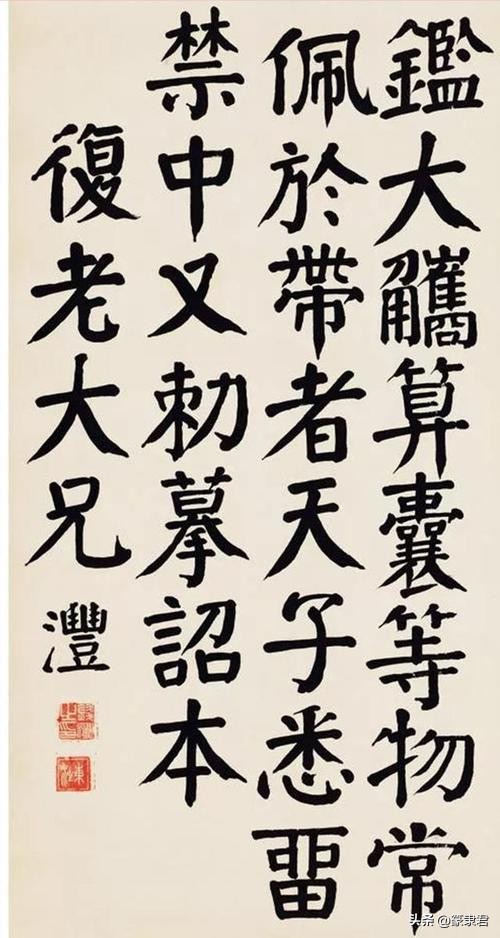 鑑大觿算囊等物常
佩於帶者天子悉畱
禁中又勅摹詔本
復老大兄
灃
头条 @篆隶君